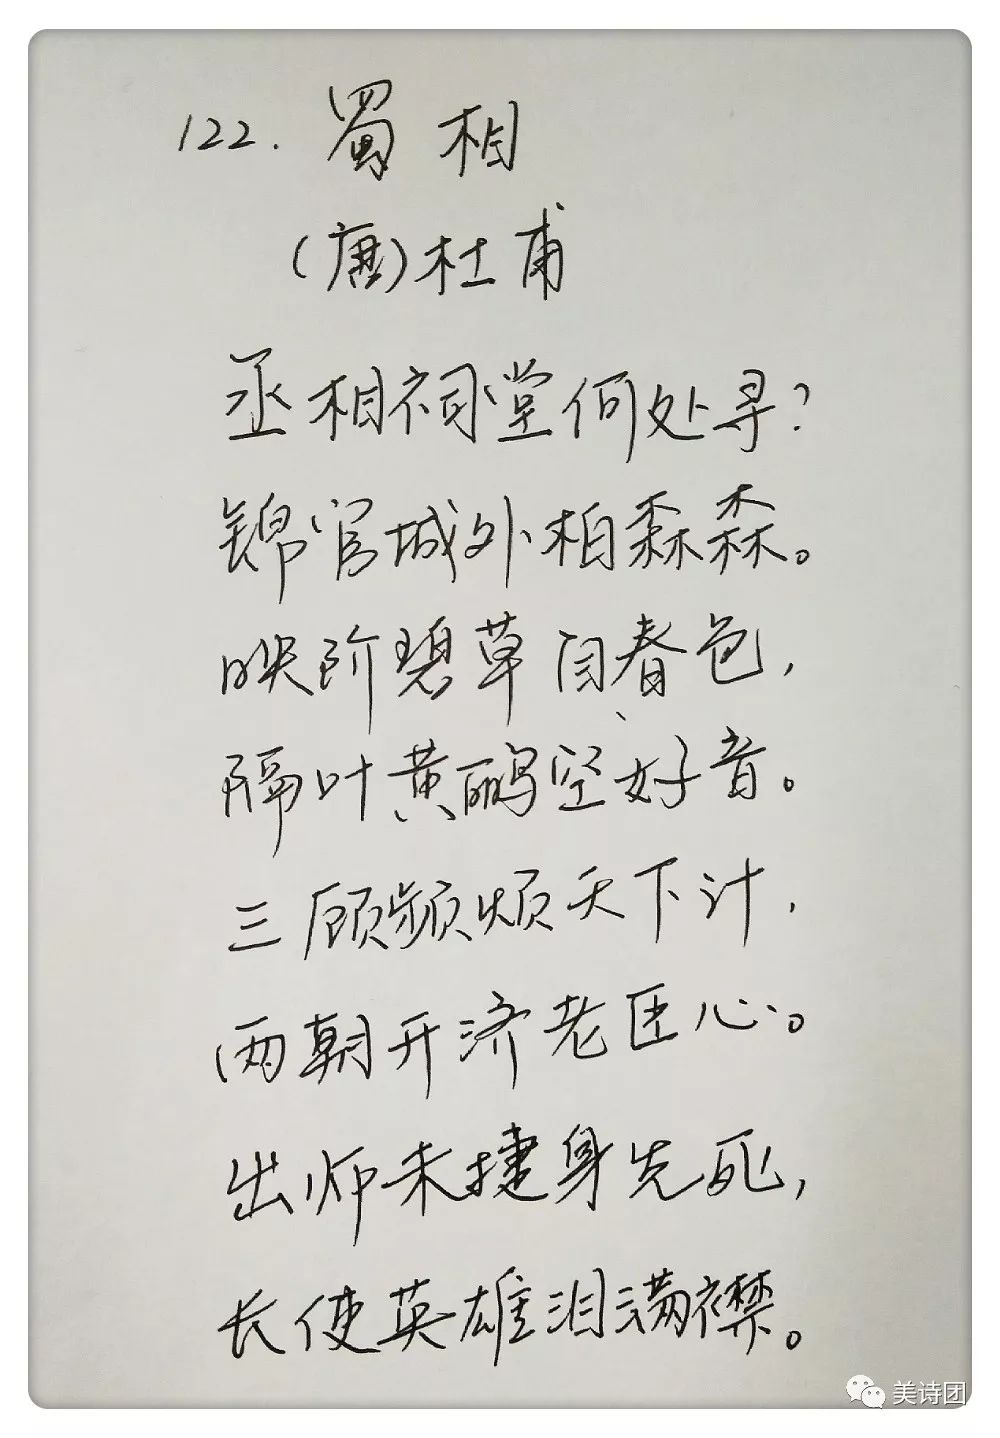 122. 蜀相
(唐)杜甫
丞相祠堂何处寻?
锦官城外柏森森。
映阶碧草自春色,
隔叶黄鹂空好音。
三顾频烦天下计,
两朝开济老臣心。
出师未捷身先死,
长使英雄泪满襟。
美诗团